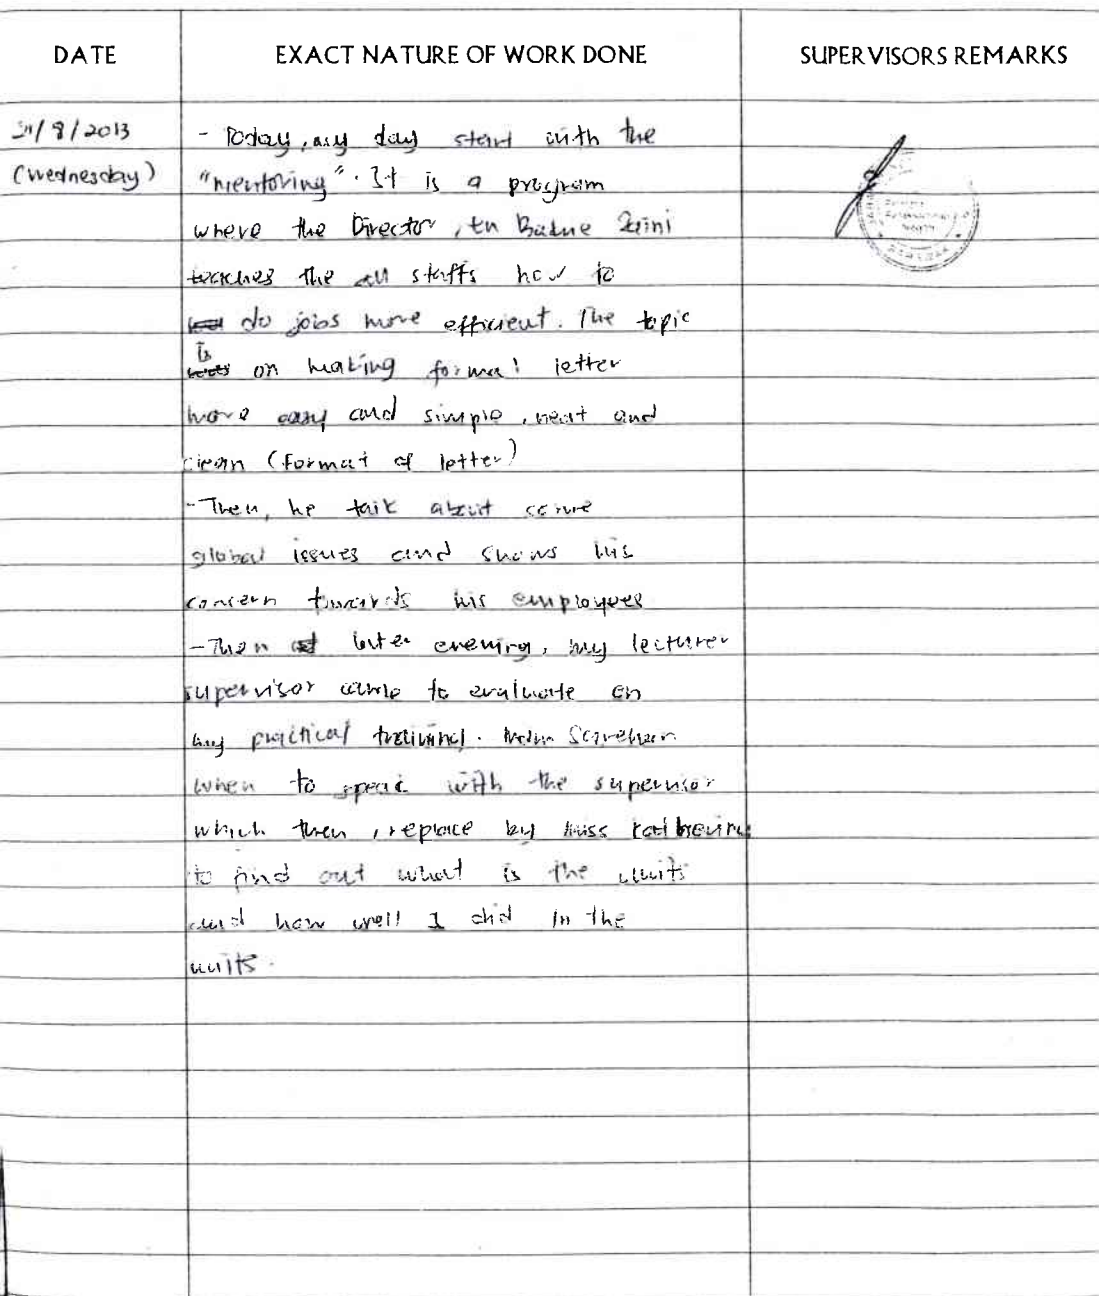 DATE EXACT NATURE OF WORK DONE SUPERVISORS REMARKS
/8/2013
(Wednesday)
- Today, my day start with the
"mentoring". It is a program
where the Director, tn Zaini
teaches the all staffs how to
do jobs more efficient. The topic
is
on making formal letter
more easy and simple, neat and
clean (format of letter)
- Then, he talk about some
global issues and shows his
concern towards his employees
- Then later evening, my lecturer
supervisor came to evaluate on
my practical training. Mdm
when to speak with the supervisor
which then, replace by Miss
to find out what is the units
and how well I did in the
units.